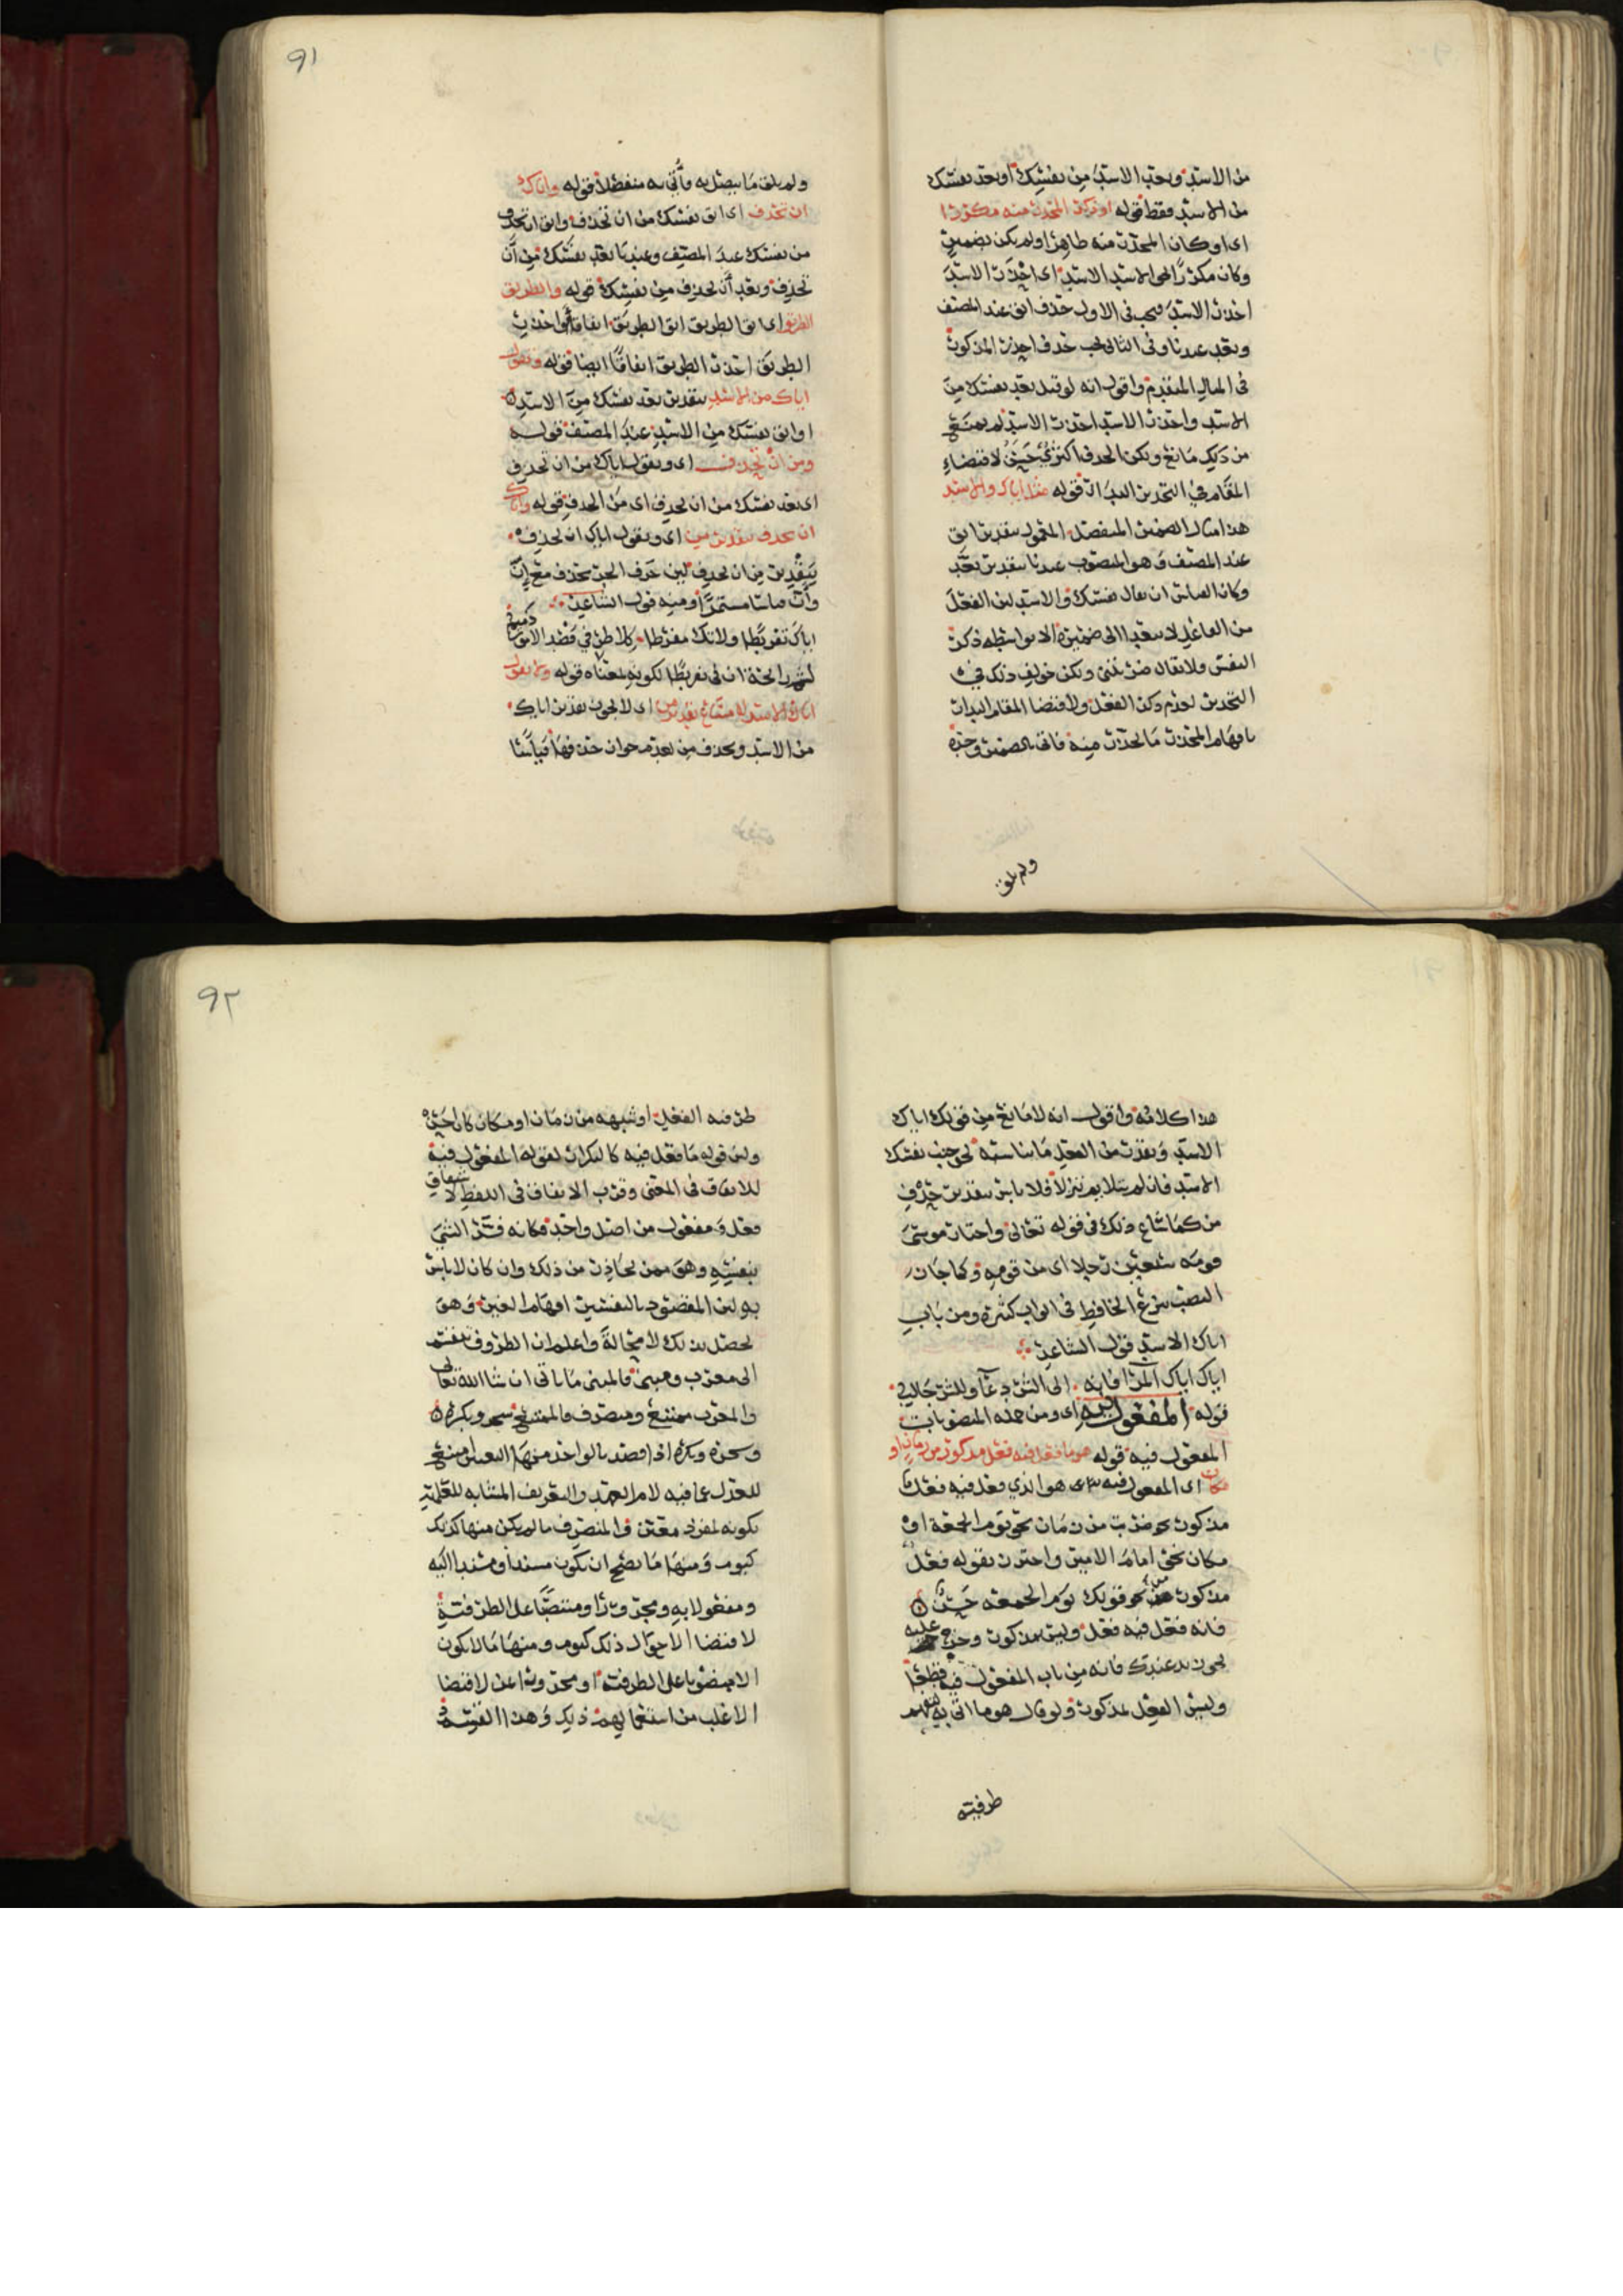 من الاسد وبعد الاسد من نفسك او بعد نفسك
من الاسد فقط قوله او ذكر المحذر منه مكررا
اى او كان المحذر منه ظاهرا ولم يكن بضمير
وكان مكررا نحو الاسد الاسد اى احذر الاسد
احذر الاسد فيجب فى الاول حذف اتق عند المصنف
وبعد عندنا وفى الثانى يجب حذف احذر المذكور
فى المثال المتقدم واقول انه لو قيل بعد نفسك من
الاسد واحذر الاسد احذر الاسد لم يمنع
من ذلك مانع ولكن الحذف اكثرى لاقتضاء
المقام فى التحذير البدار قوله مثل اياك والاسد
هذا مثال الضمير المنفصل المعمول بتقدير اتق
عند المصنف وهو المنصوب عندنا بتقدير بعد
وكان القياس ان يقال نفسك والاسد لان الفعل
من الفاعل لا يتعدا الى ضميره الا بواسطه ذكر
النفس ولا يقال ضربتنى ولكن خولف ذلك فى
التحذير لعدم ذكر الفعل ولاقتضا المقام البدار
بافهام المحذر ما يحذر منه فاتى بالضمير وحده
ولم يلق
٩١
ولم يلق ما يتصل به فأتى به منفصلا قوله واياك
ان تحذف اى اتق نفسك من ان تحذف واتق ان تحذف
من نفسك عند المصنف وعندنا بعد نفسك من أن
تحذف وبعد أن تحذف من نفسك قوله والطريق
الطريق اى اتق الطريق اتق الطريق اتفاقا او احذر
الطريق احذر الطريق اتفاقا ايضا قوله وتقول
اياك من الاسد بتقدير بعد نفسك من الاسد
او اتق نفسك من الاسد عند المصنف قوله
ومن ان تحذف اى وتقول اياك من ان تحذف
اى بعد نفسك من ان تحذف اى من الحذف قوله واياك
ان تحذف بتقدير من اى وتقول اياك ان تحذف
بتقدير من ان تحذف لان حرف الجر يحذف مع إنّ
وأن قياسا مستمرا ومنه قول الشاعر
اياك تفريطا ولا تك مفرطا كلا طرفي قصد الامور ذميم
قوله ولا تقول
اياك الاسد لامتناع تقدير من اى لا يجوز تقدير اياك
من الاسد ويحذف من لعدم جواز حذفها قياسا
هذا كلامه واقول انه لا مانع من قولك اياك
الاسد وتقدر من الفعل ما يناسبه نحو جنب نفسك
الاسد فان لم يتلايم تنزلا فلا باس بتقدير حذف
من كما شاع ذلك فى قوله تعالى واختار موسى
قومه سبعين رجلا اى من قومه وكما جاز
النصب بنزع الخافض فى ابواب كثيرة ومن باب
اياك الاسد قول الشاعر
اياك اياك المرا فإنه الى الشر دعآ وللشر جالب
قوله المفعول فيه اى ومن جمله المنصوبات
المفعول فيه قوله هو ما فعل فيه فعل مذكور من زمان او
مكان اى المفعول فيه هو الذي فعل فيه فعل
مذكور نحو ضربت من زمان نحو يوم الجمعة او
مكان نحو امام الامير واحترز بقوله فعل
مذكور من نحو قولك يوم الجمعه حسن
فانه فعل فيه فعل وليس بمذكور وخرج عليه
نحو زيد عندك فانه من باب المفعول فيه قطعا
وليس الفعل بمذكور ولو قال هو ما اتى به لتفهم
ظرفيته
٩٢
ظرفيه الفعل او شبهه من زمان او مكان كان احسن
ولان قوله ما فعل فيه كالتكرار لقوله المفعول فيه
للاتفاق فى المعنى وقرب الاتفاق فى اللفظ لاشتقاق
فعل ومفعول من اصل واحد فكانه فسر الشى
بنفسه وهو ممن يحاذر من ذلك وان كان لا باس
به لان المقصود بالتفسير افهام الغير وهو
يحصل بذلك لا محالة واعلم ان الظروف تنقسم
الى معرب ومبنى فالمبنى ما ياتى ان شا الله تعالى
والمعرب ممتنع ومنصرف فالممتنع سحر وبكرة
وسحره وبكره اذا قصد بالواحد منها التعيين امتنع
للعدل عما فيه لام العهد والتعريف المشابه للعلميه
بكونه لمفرد معين والمنصرف ما لم يكن منها كذلك
كيوم ومنها ما يصح ان يكون مسندا ومسندا اليه
ومفعولا به ومجرورا ومنتصبا على الظرفية
لاقتضا الاحوال ذلك كيوم ومنها ما لا يكون
الا منصوبا على الظرفيه او مجرورا بمن لاقتضا
الاغلب من استعمالهم ذلك وهذا القسم